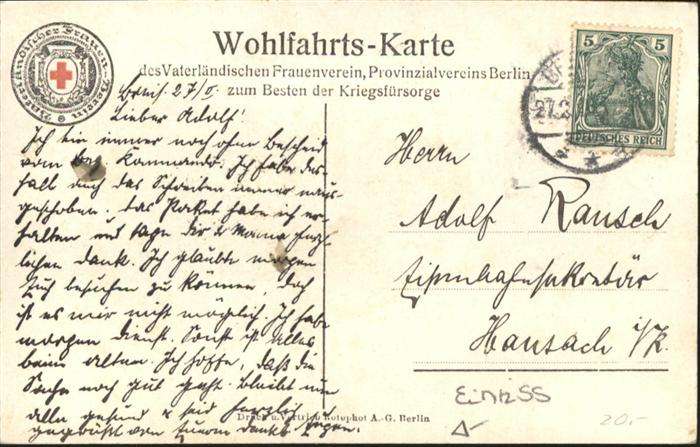 Vaterländischer Frauen-Verein
Wohlfahrts-Karte
des Vaterländischen Frauenverein, Provinzialvereins Berlin
zum Besten der Kriegsfürsorge
5 5
DEUTSCHES REICH
27/
Lieber Adolf!
Ich bin immer noch ohne Bescheid
vom Kommando. Ich habe des-
halb auch das Schreiben immer naus-
geschoben. Das Paket habe ich er-
halten und sage Dir & Mama herz-
lichen Dank. Ich glaubte morgen
Euch besuchen zu können, doch
ist es mir nicht möglich. Ich habe
morgen Dienst. Sonst ist alles
beim alten. Ich hoffe, daß die
Sache noch gut geht. Bleibt nun
alle gesund & seid herzlich
gegrüßt von Eurem dankb. Eugen.
Herrn
Adolf Rausch
Eisenbahnsekretär
Hausach i/K.
Druck u. Vertrieb Rotophot A.-G. Berlin
20.-